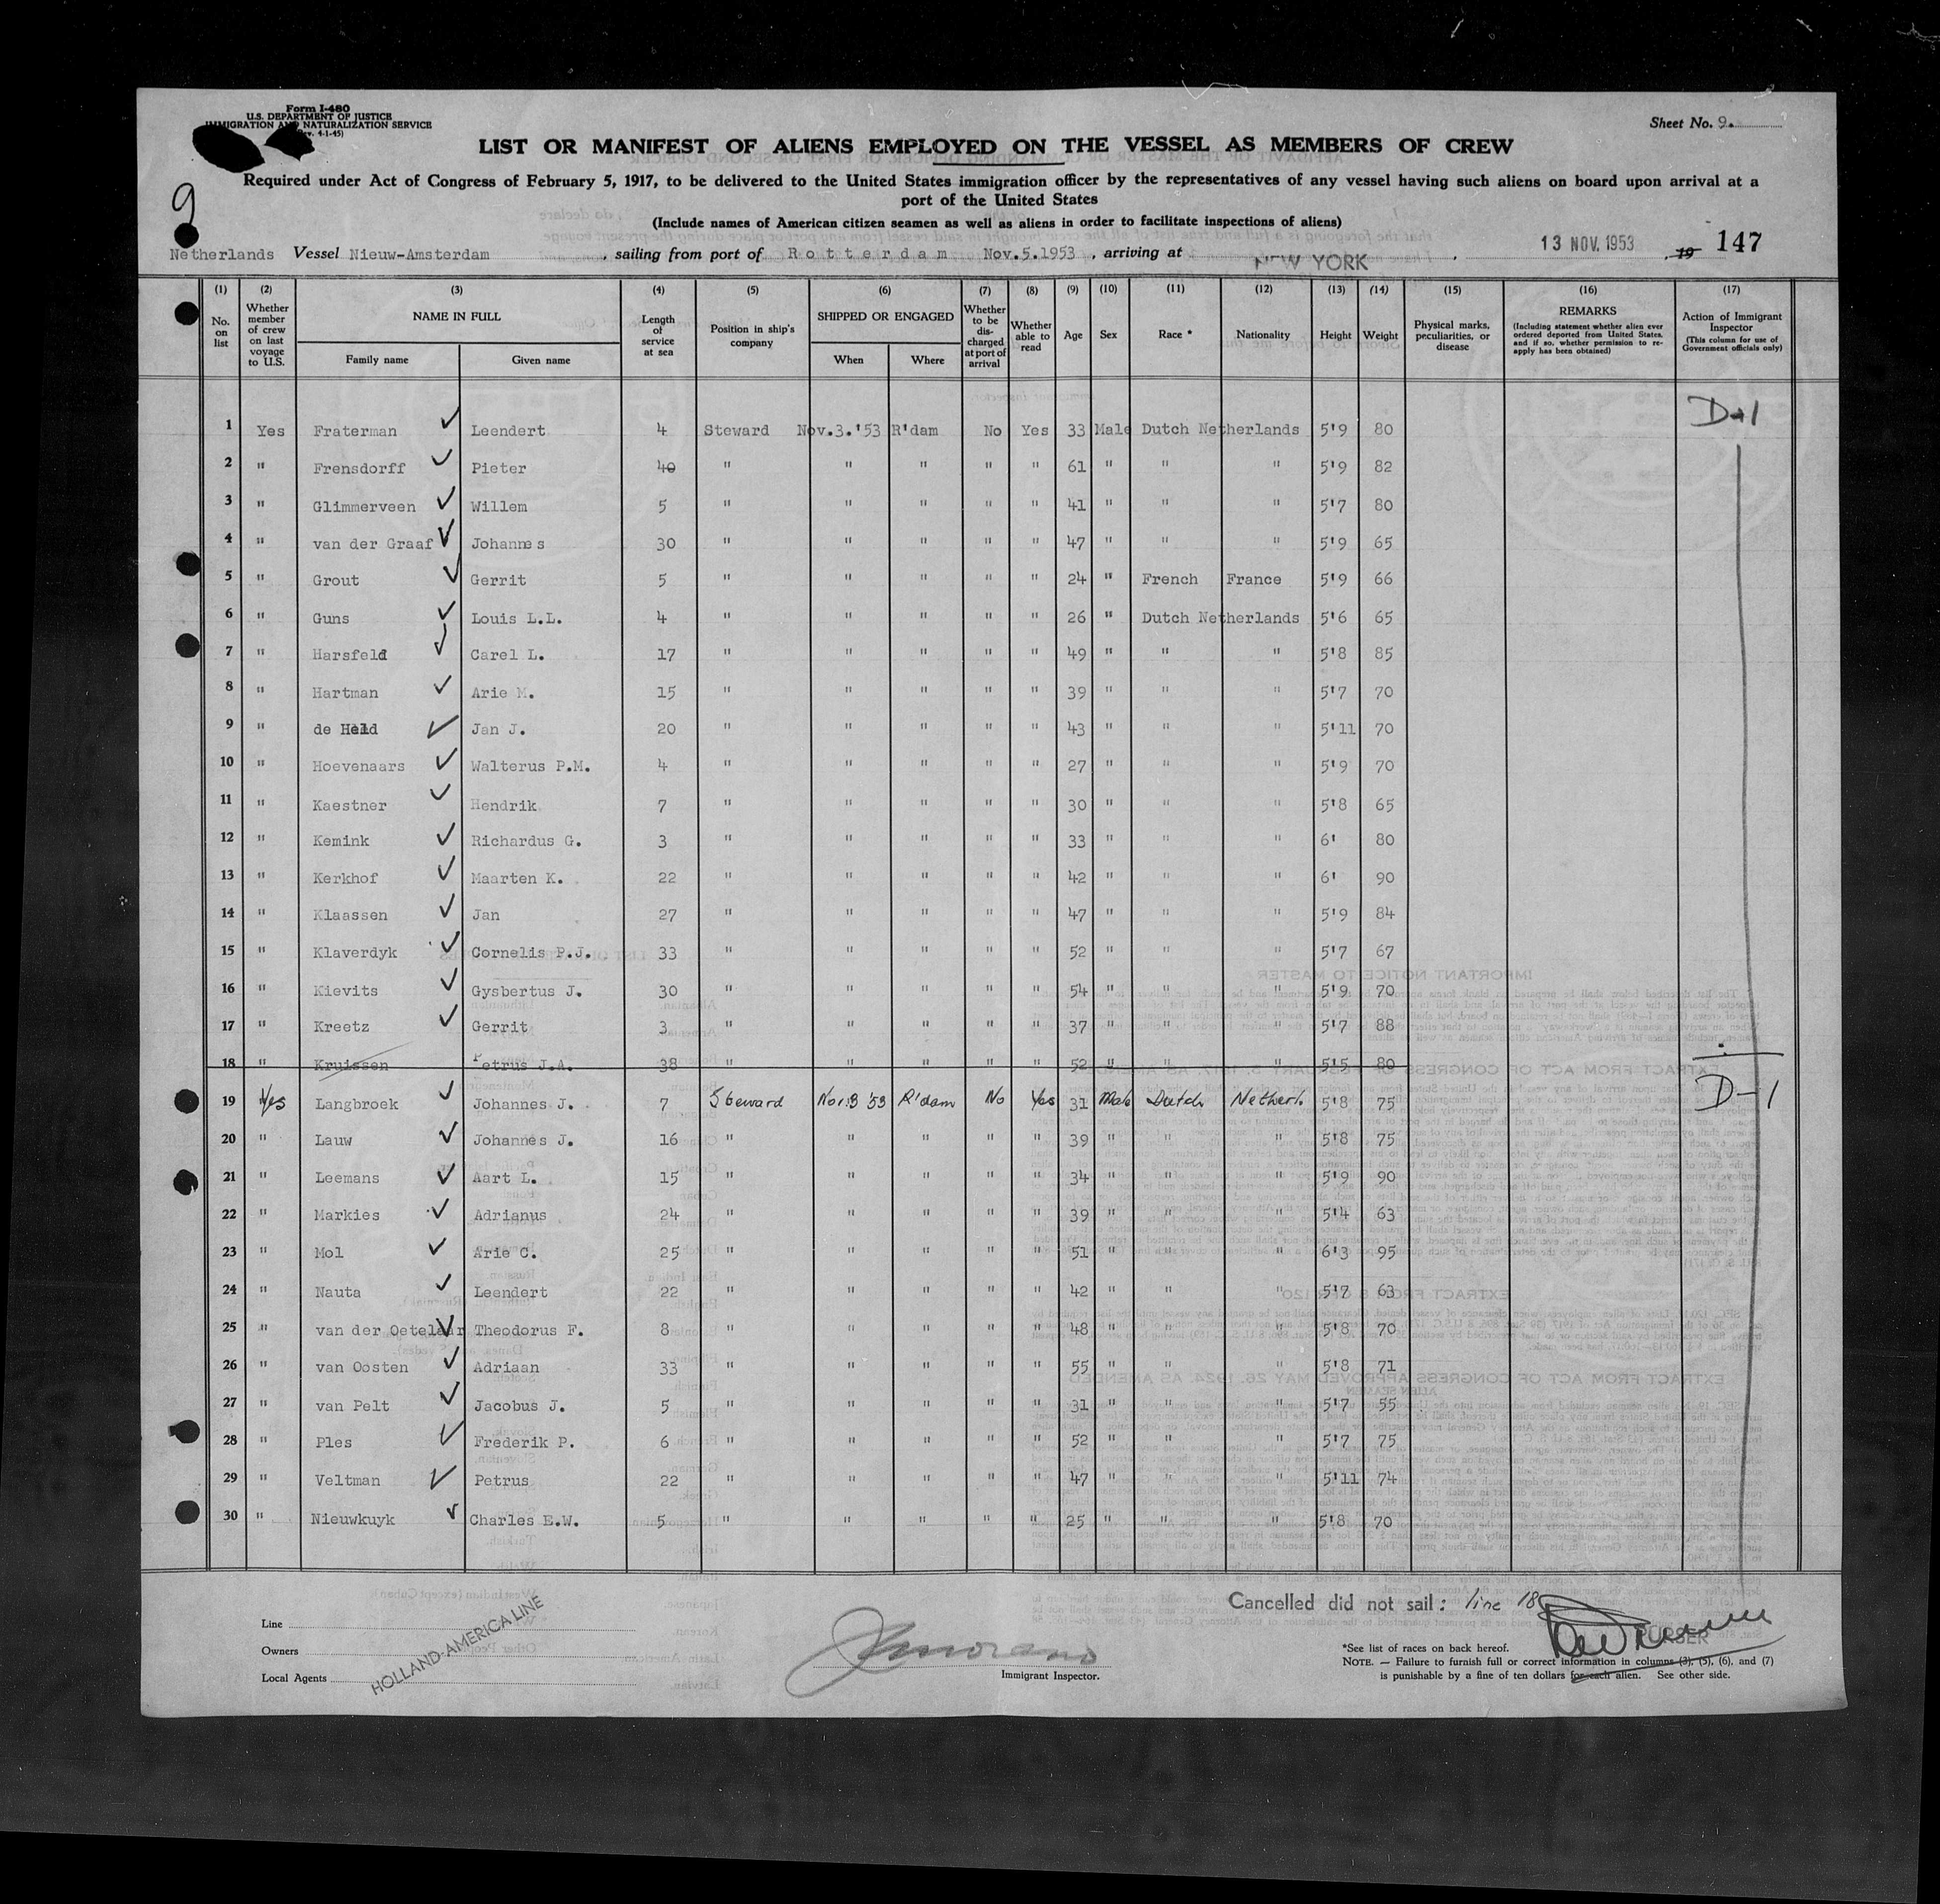 Form I-480
U.S. DEPARTMENT OF JUSTICE
IMMIGRATION AND NATURALIZATION SERVICE
(Rev. 4-1-45)
Sheet No. 9.
LIST OR MANIFEST OF ALIENS EMPLOYED ON THE VESSEL AS MEMBERS OF CREW
Required under Act of Congress of February 5, 1917, to be delivered to the United States immigration officer by the representatives of any vessel having such aliens on board upon arrival at a
port of the United States
(Include names of American citizen seamen as well as aliens in order to facilitate inspections of aliens)
9
Netherlands Vessel Nieuw-Amsterdam, sailing from port of Rotterdam Nov.5.1953, arriving at NEW YORK, 13 NOV. 1953, 19 147
(1) (2) (3) (4) (5) (6) (7) (8) (9) (10) (11) (12) (13) (14) (15) (16) (17)
No. on list
Whether member of crew on last voyage to U.S.
NAME IN FULL
Family name
Given name
Length of service at sea
Position in ship's company
SHIPPED OR ENGAGED
When
Where
Whether to be discharged at port of arrival
Whether able to read
Age
Sex
Race *
Nationality
Height
Weight
Physical marks, peculiarities, or disease
REMARKS
(Including statement whether alien ever ordered deported from United States, and if so, whether permission to re-apply has been obtained)
Action of Immigrant Inspector
(This column for use of Government officials only)
1 Yes Fraterman Leendert 4 Steward Nov.3.'53 R'dam No Yes 33 Male Dutch Netherlands 5'9 80 D-1
2 " Frensdorff Pieter 40 " " " " " 61 " " " 5'9 82
3 " Glimmerveen Willem 5 " " " " " 41 " " " 5'7 80
4 " van der Graaf Johannes 30 " " " " " 47 " " " 5'9 65
5 " Grout Gerrit 5 " " " " " 24 " French France 5'9 66
6 " Guns Louis L.L. 4 " " " " " 26 " Dutch Netherlands 5'6 65
7 " Harsfeld Carel L. 17 " " " " " 49 " " " 5'8 85
8 " Hartman Arie M. 15 " " " " " 39 " " " 5'7 70
9 " de Held Jan J. 20 " " " " " 43 " " " 5'11 70
10 " Hoevenaars Walterus P.M. 4 " " " " " 27 " " " 5'9 70
11 " Kaestner Hendrik 7 " " " " " 30 " " " 5'8 65
12 " Kemink Richardus G. 3 " " " " " 33 " " " 6' 80
13 " Kerkhof Maarten K. 22 " " " " " 42 " " " 6' 90
14 " Klaassen Jan 27 " " " " " 47 " " " 5'9 84
15 " Klaverdyk Cornelis P.J. 33 " " " " " 52 " " " 5'7 67
16 " Kievits Gysbertus J. 30 " " " " " 54 " " " 5'9 70
17 " Kreetz Gerrit 3 " " " " " 37 " " " 5'7 88
18 " Kruissen Petrus J.A. 38 " " " " " 52 " " " 5'5 80
19 Yes Langbroek Johannes J. 7 Steward Nov.3 '53 R'dam No Yes 31 Male Dutch Netherl. 5'8 75 D-1
20 " Lauw Johannes J. 16 " " " " " 39 " " " 5'8 75
21 " Leemans Aart L. 15 " " " " " 34 " " " 5'9 90
22 " Markies Adrianus 24 " " " " " 39 " " " 5'4 63
23 " Mol Arie C. 25 " " " " " 51 " " " 6'3 95
24 " Nauta Leendert 22 " " " " " 42 " " " 5'7 63
25 " van der Oetelaar Theodorus F. 8 " " " " " 48 " " " 5'8 70
26 " van Oosten Adriaan 33 " " " " " 55 " " " 5'8 71
27 " van Pelt Jacobus J. 5 " " " " " 31 " " " 5'7 55
28 " Ples Frederik P. 6 " " " " " 52 " " " 5'7 75
29 " Veltman Petrus 22 " " " " " 47 " " " 5'11 74
30 " Nieuwkuyk Charles E.W. 5 " " " " " 25 " " " 5'8 70
Cancelled did not sail: line 18
PURSER
Line
Owners
Local Agents
HOLLAND-AMERICA LINE
Immigrant Inspector.
*See list of races on back hereof.
NOTE. — Failure to furnish full or correct information in columns (3), (5), (6), and (7)
is punishable by a fine of ten dollars for each alien. See other side.